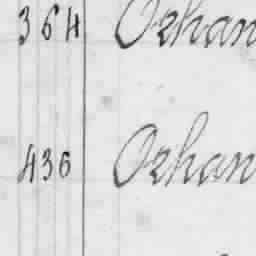 364 Ozhan
436 Ozhan